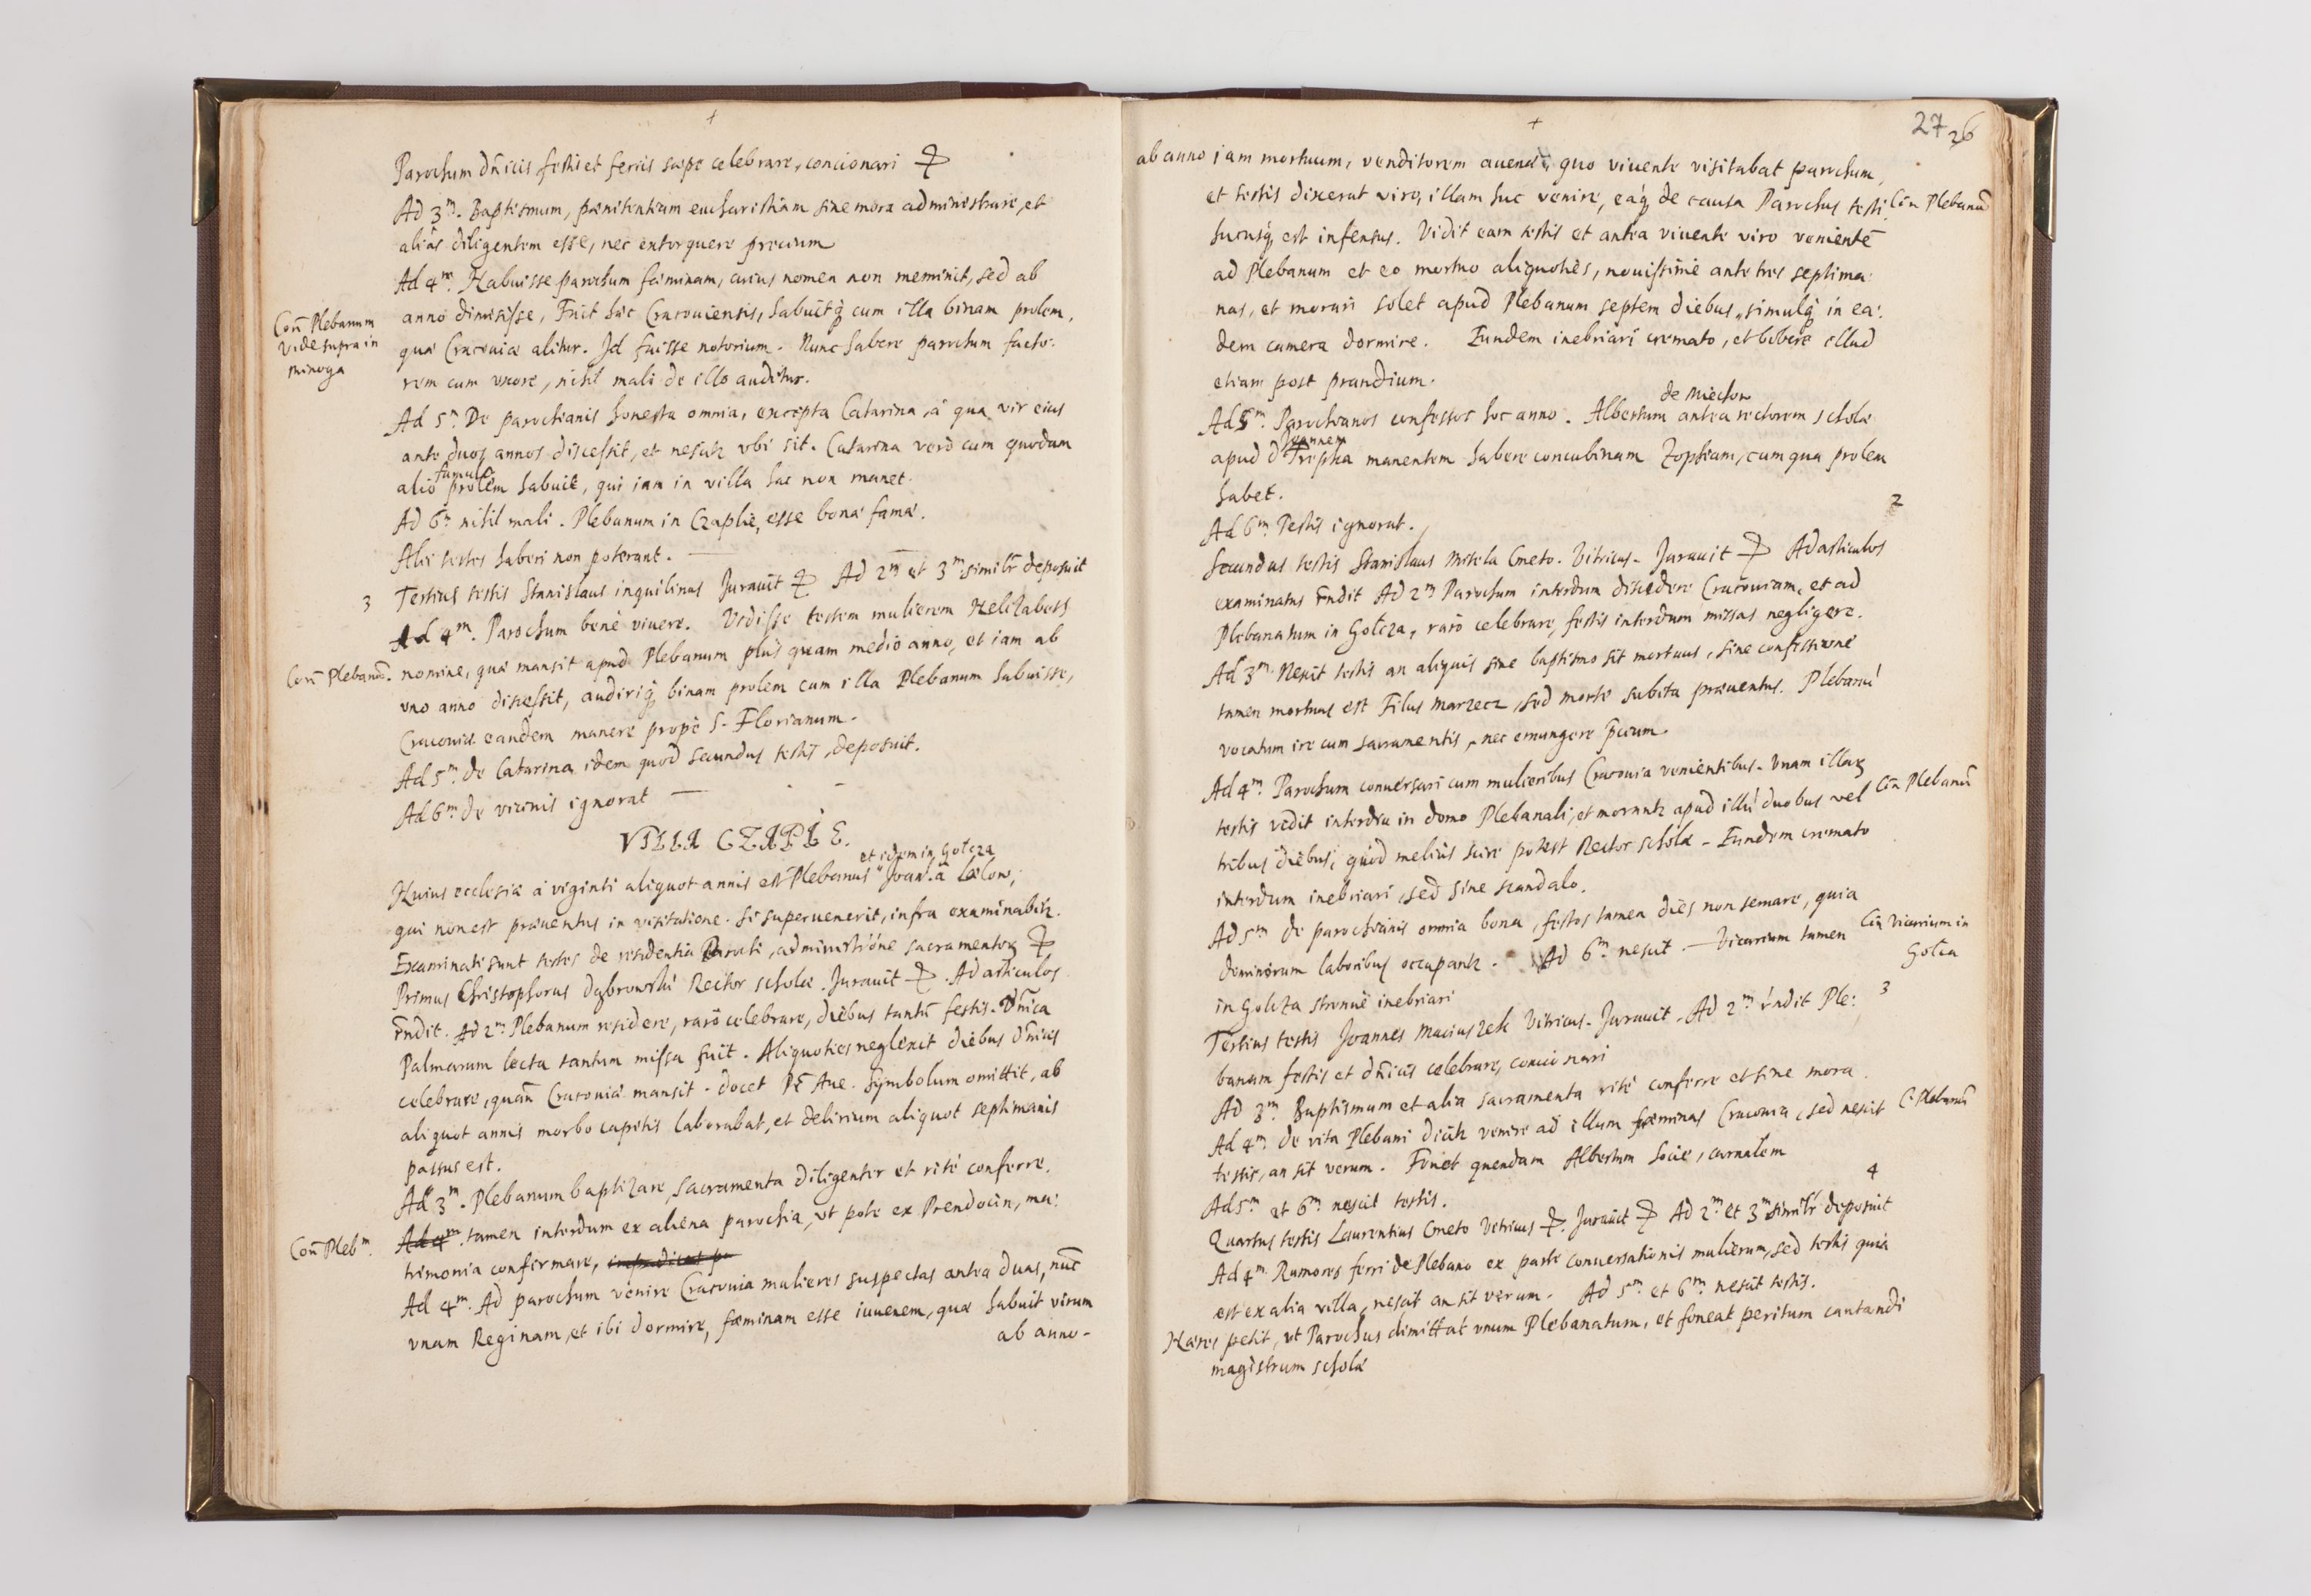 +
Parochum dn̄icis festis et feriis sæpe celebrare, concionari
Ad 3m. Baptismum, pænitentiam eucharistiam sine mora administrare, et
aliâs diligentem esse, nec extorquere precium
Ad 4m. Habuisse parochum fæminam, cuius nomen non meminit, sed ab
anno dimisisse, Fuit hæc Cracouiensis, habuitq cum illa binam prolem,
Con̄ Plebanum
vide supra in
minoga
quæ Cracouiæ alitur. Id fuisse notorium. Nunc habere parochum facto:
rem cum vxore, nihil mali de illo auditur.
Ad 5m De parochianis honesta omnia, excepta Catarina, à qua vir eius
ante duos annos discessit, et nescitr vbi sit. Catarina verò cum quodam
alio famulo prolem habuit, qui iam in villa hac non manet.
Ad 6m nihil mali. Plebanum in Czaple, esse bonæ famæ.
Alii testes haberi non poterant.
3 Tertius testis Stanislaus inquilinus Jurauit Ad 2m et 3m similr deposuit
Ad 4m. Parochum benè viuere. Vidisse testem mulierem Helzabeth
Con̄ Plebanū. nomine, quæ mansit apud Plebanum plùs quam medio anno, et iam ab
vno anno discessit, audiriq binam prolem cum illa Plebanum habuisse,
Cracouiæ eandem manere propè S. Florianum.
Ad 5m de Catarina idem quod secundus testis deposuit.
Ad 6m de vicinis ignorat
VILLA CZAPLE.
et idem in Golcza
Huius ecclesiæ à viginti aliquot annis est Plebanus Joan. à Lelow,
qui non est præuentus in visitatione. Si superuenerit, infra examinabitr.
Examinati sunt testes de residentia Parochi, administrōne sacramentor
Primus Christophorus Dąbrowski Rector scholæ. Jurauit. Ad articulos
rn̄dit. Ad 2m Plebanum residere, rarò celebrare, diebus tantū festis. Dn̄ica
Palmarum lecta tantum missa fuit. Aliquoties neglexit diebus dn̄icis
celebrare, quan̄ Cracouiæ mansit. docet Pr̄ Aue. Symbolum omittit, ab
aliquot annis morbo capitis laborabat, et delirium aliquot septimanis
passus est.
Ad 3m. Plebanum baptizare, sacramenta diligenter et ritè conferre,
Con̄ Plebm. Ad 4m. tamen interdum ex aliena parochia, vt pote ex Prendocin, ma:
trimonia confirmare,
Ad 4m. Ad parochum venire Cracouia mulieres suspectas antea duas, nūc
vnam Reginam, et ibi dormire, fæminam esse iuuenem, quæ habuit virum
ab anno-
+
27 26
ab anno iam mortuum, venditorem auenæ, quo viuente visitabat parochum,
et testis dixerat viro, illam huc venire, eaq de causa Parochus testi Con̄ Plebanū
hucusq est infensus. Vidit eam testis et antea viuente viro venientē
ad Plebanum et eo mortuo aliquoties, nouissimè ante tres septima
nas, et morari solet apud Plebanum septem diebus, simulq in ea:
dem camera dormire. Eundem inebriari cremato, et bibere illud
etiam post prandium.
de Miechow
Ad 5m. Parochianos confessos hoc anno. Albertum antea rectorem scholæ
Joannem
apud D Trepka manentem habere concubinam Zophiam, cum qua prolem
habet.
Ad 6m Testis ignorat.
2
Secundus testis Stanislaus Misela Cmeto. Vitricus. Jurauit Ad articulos
examinatus rn̄dit Ad 2m Parochum interdum discedere Cracouiam, et ad
Plebanatum in Golcza, rarò celebrare, festis interdum missas negligere.
Ad 3m. Nescit testis an aliquis sine baptismo sit mortuus, sine confessione
tamen mortuus est Filus Marzecz, sed morte subita præuentus. Plebanū
vocatum ire cum sacramentis, nec emungere p̄cium.
Ad 4m. Parochum conuersari cum mulieribus Cracouia venientibus. Vnam illar
testis vidit interdiu in domo Plebanali, et morantr apud illū duobus vel Con̄ Plebanū
tribus diebus, quod meliùs scire potest Rector scholæ. Eundem cremato
interdum inebriari, sed sine scandalo.
Ad 5m de parochianis omnia bona, festos tamen dies non seruare, quia
dominorum laboribus occupantr. Ad 6m nescit. Vicarium tamen Con̄ Vicarium in
Golcza
in Golcza strenuè inebriari
3
Tertius testis Joannes Maciuszek Vitricus. Jurauit. Ad 2m rn̄dit Ple:
banum festis et dn̄icis celebrare, concionari
Ad 3m. Baptismum et alia sacramenta ritè conferre et sine mora
Ad 4m. de vita Plebani dicitr venire ad illum fæminas Cracouia, sed nescit C. Plebanū
testis, an sit verum. Fouet quendam Albertum carnalem
Ad 5m et 6m nescit testis.
4
Quartus testis Laurentius Cmeto Vitricus. Jurauit Ad 2m et 3m similr deposuit
Ad 4m. Rumores ferri de Plebano ex parte conuersationis mulierum, sed testis quia
est ex alia villa, nescit an sit verum. Ad 5m et 6m nescit testis.
Hæres petit, vt Parochus dimittat vnum Plebanatum, et foueat peritum cantandi
magistrum scholæ